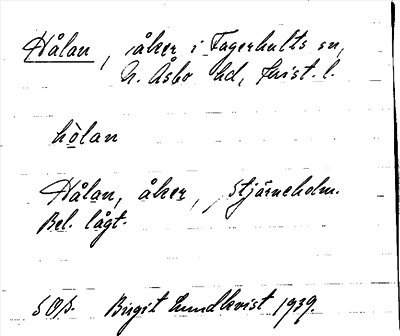 Hålan, åker i Fagerhults sn,
N. Åsbo hd, Krist. l.
hòlan
Hålan, åker, Stjärneholm.
Bel. lågt.
SOÞ. Birgit Lundkvist 1939.